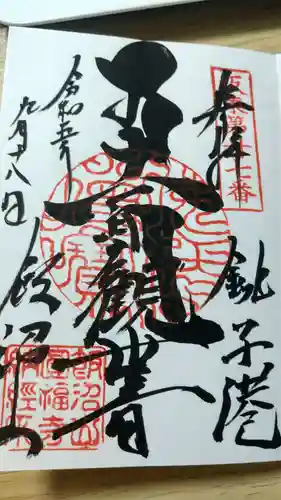 奉拝
坂東第二十七番
銚子港
十一面觀世音
令和五年
九月十八日
飯沼山
飯沼山
圓福寺